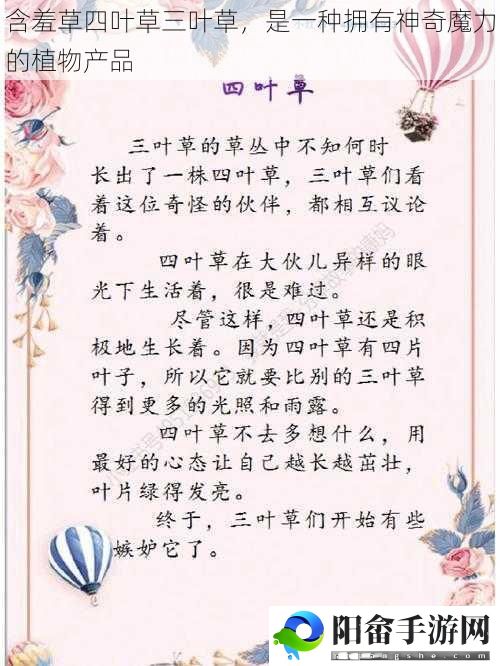 含羞草四叶草三叶草，是一种拥有神奇魔力
的植物产品
四叶草
三叶草的草丛中不知何时
长出了一株四叶草，三叶草们看
着这位奇怪的伙伴，都相互议论
着。
四叶草在大伙儿异样的眼
光下生活着，很是难过。
尽管这样，四叶草还是积
极地生长着。因为四叶草有四片
叶子，所以它就要比别的三叶草
得到更多的光照和雨露。
四叶草不去多想什么，用
最好的心态让自己越长越茁壮，
叶片绿得发亮。
终于，三叶草们开始有些
嫉妒它了。
阳畲手游网